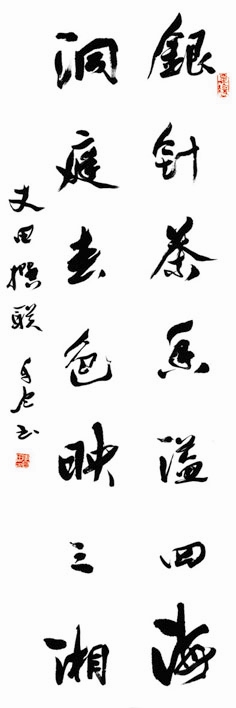 銀针茶香溢四海
洞庭春色映三湘
田撰联 书